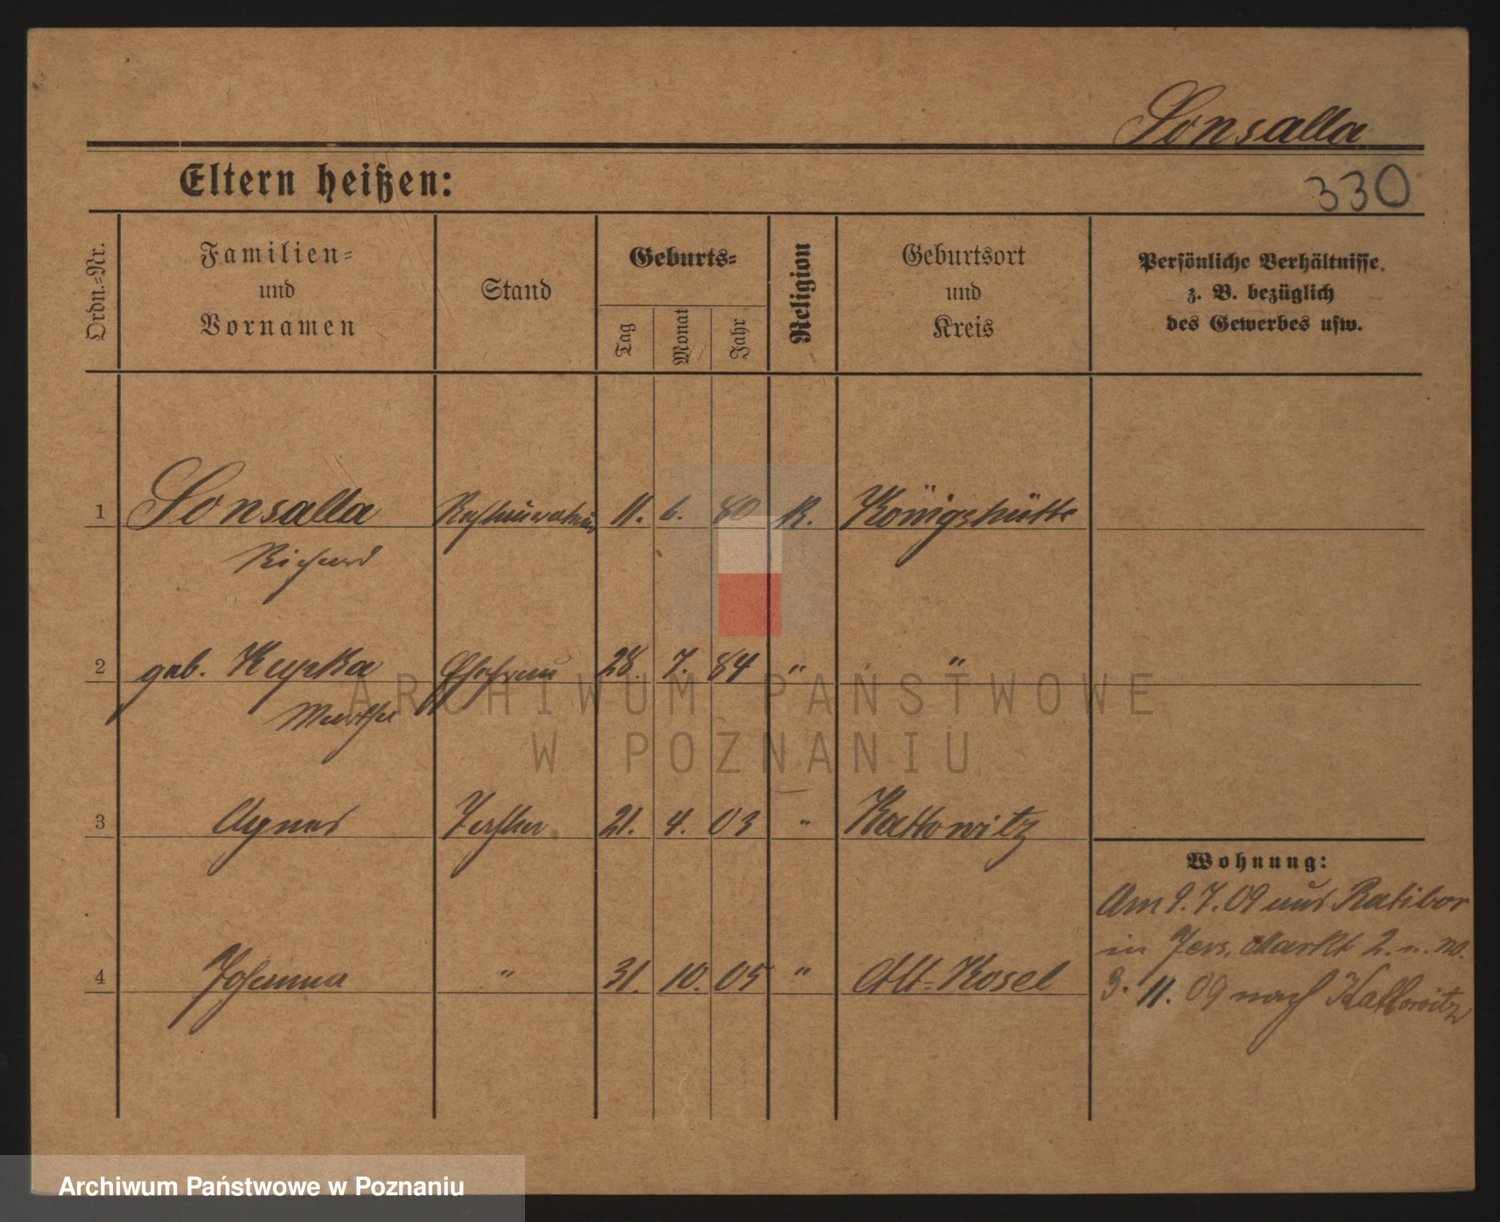 Sonsalla
Eltern heißen:
330
Ordn.-Nr.
Familien-
und
Vornamen
Stand
Geburts-
Tag
Monat
Jahr
Religion
Geburtsort
und
Kreis
Persönliche Verhältnisse,
z. B. bezüglich
des Gewerbes usw.
1 Sonsalla Restaurateur 11. 6. 80 K. Königshütte
Richard
2 geb. Kupka Ehefrau 28. 7. 84 " "
Martha
3 Agnes Tochter 21. 4. 03 " Kattowitz
Wohnung:
Am 9.7.09 aus Ratibor
in Jers. Markt 2. n. W.
4 Johanna " 31. 10. 05 " Alt-Kosel
3. 11. 09 nach Kattowitz
ARCHIWUM PAŃSTWOWE
W POZNANIU
Archiwum Państwowe w Poznaniu